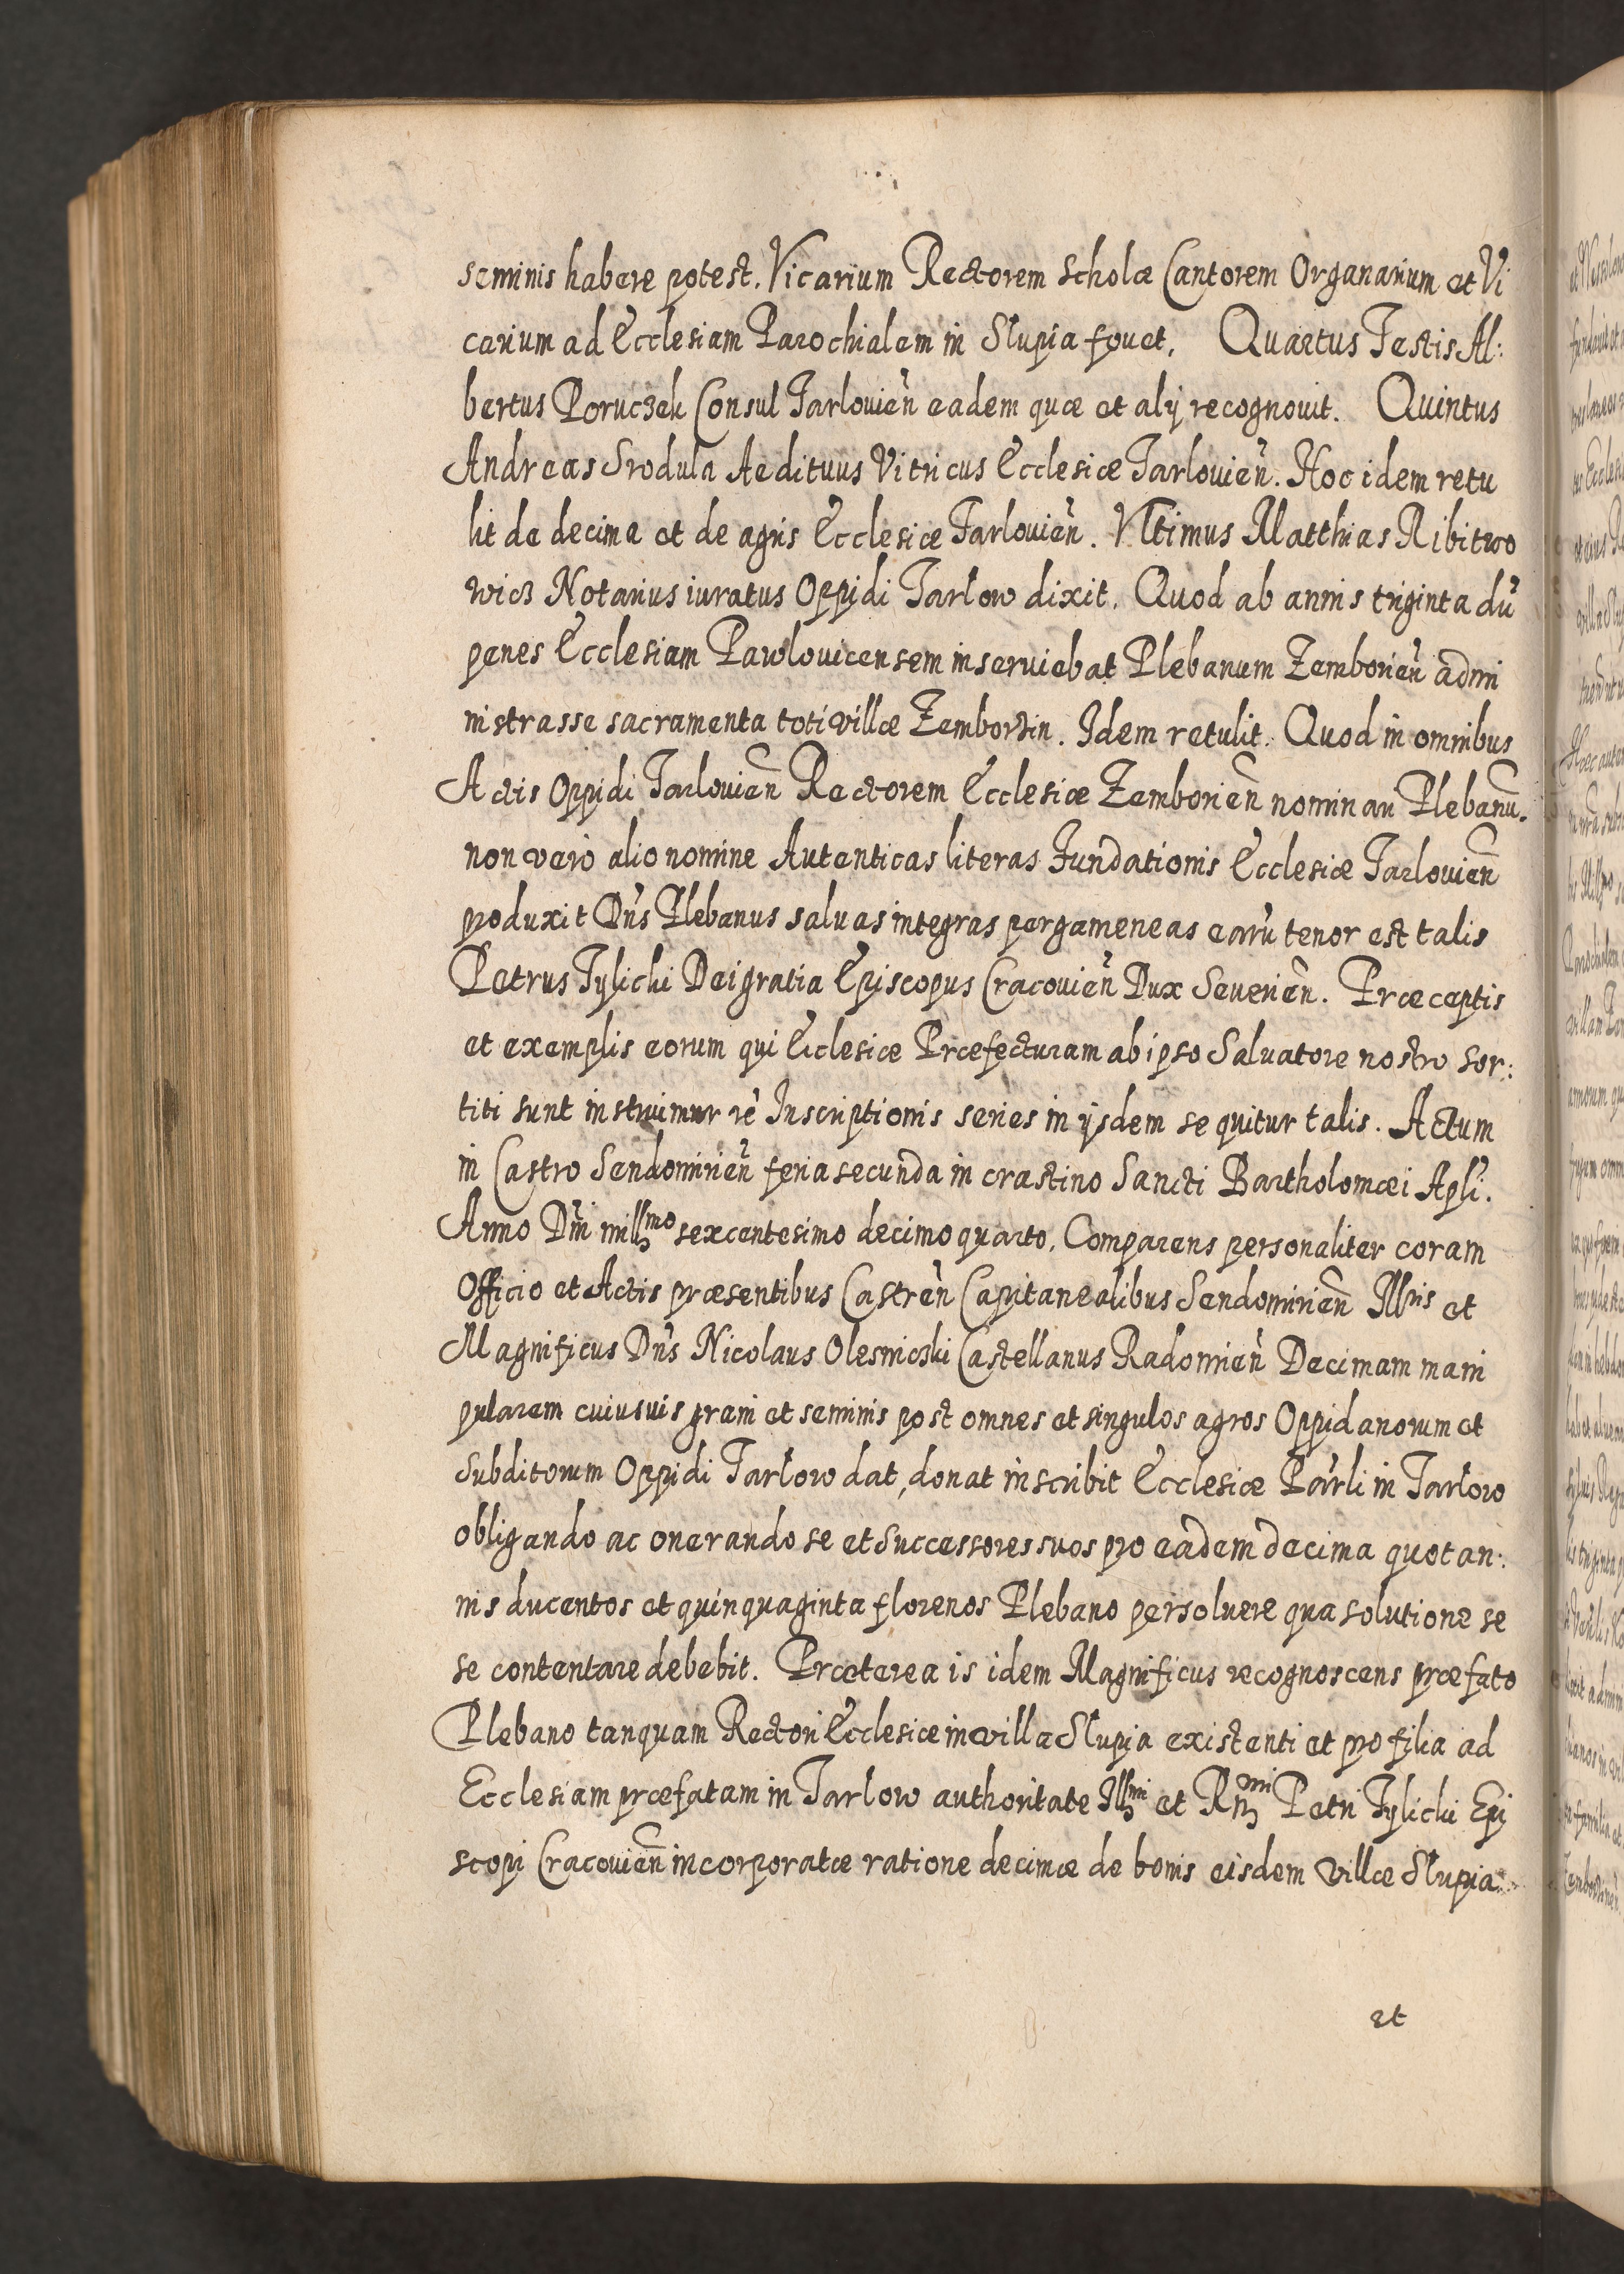 seminis habere potest. Vicarium Rectorem scholæ Cantorem Organarium et Vi
carium ad Ecclesiam Parochialem in Slupia fouet. Quartus Testis Al:
bertus Poruczek Consul Tarlouien̄ eadem quæ et alÿ recognouit. Quintus
Andreas Srodula Aedituus Vitricus Ecclesiæ Tarlouien̄. Hoc idem retu
lit de decima et de agris Ecclesiæ Tarlouien̄. Vltimus Matthias Ribitwo
wicz Notarius iuratus Oppidi Tarlow dixit. Quod ab annis triginta dū
penes Ecclesiam Pawlouicensem inseruiebat Plebanum Zemborien̄ admi
nistrasse sacramenta toti villæ Zemborzin. Idem retulit. Quod in omnibus
Actis Oppidi Tarlouien̄ Rectorem Ecclesiæ Zemborien̄ nominari Plebanū.
non verò alio nomine Autenticas literas Fundationis Ecclesiæ Tarlouien̄
produxit Dn̄s Plebanus saluas integras pergameneas earū tenor est talis
Petrus Tylicki Dei gratia Episcopus Cracouien̄ Dux Seuerien̄. Præceptis
et exemplis eorum qui Ecclesiæ Præfecturam ab ipso Saluatore nostro sor:
titi sunt instruimur rē Inscriptionis series in ijsdem sequitur talis. Actum
in Castro Sendomirien̄ feria secunda in crastino Sancti Bartholomæi Apli.
Anno Dn̄i millmo sexcentesimo decimo quarto. Comparens personaliter coram
Officio et Actis præsentibus Castren̄ Capitanealibus Sendomirien̄ Illris et
Magnificus Dn̄s Nicolaus Olesniczki Castellanus Radomien̄ Decimam mani
pularem cuiusuis grani et seminis post omnes et singulos agros Oppidanorum et
Subditorum Oppidi Tarlow dat, donat inscribit Ecclesiæ Par̄li in Tarlow
obligando ac onerando se et Successores suos pro eadem decima quotan:
nis ducentos et quinquaginta florenos Plebano persoluere qua solutione se
se contentare debebit. Præterea is idem Magnificus recognoscens præfato
Plebano tanquam Rectori Ecclesiæ in villa Slupia existenti et pro filia ad
Ecclesiam præfatam in Tarlow authoritate Illmi et Rmi Petri Tylicki Epi
scopi Cracouien̄ incorporatæ ratione decimæ de bonis eisdem villæ Slupia
et